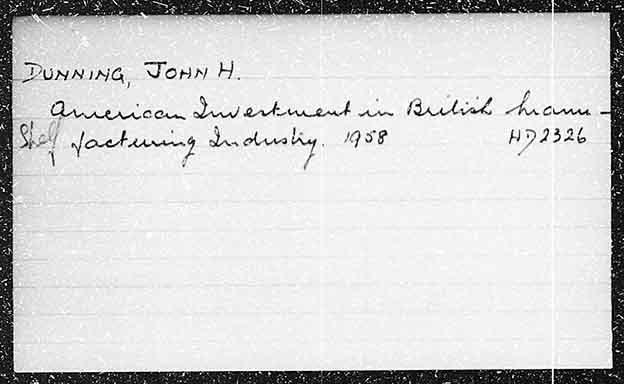 DUNNING, JOHN H.
American Investment in British Manu-
Shelf facturing Industry. 1958 HD2326